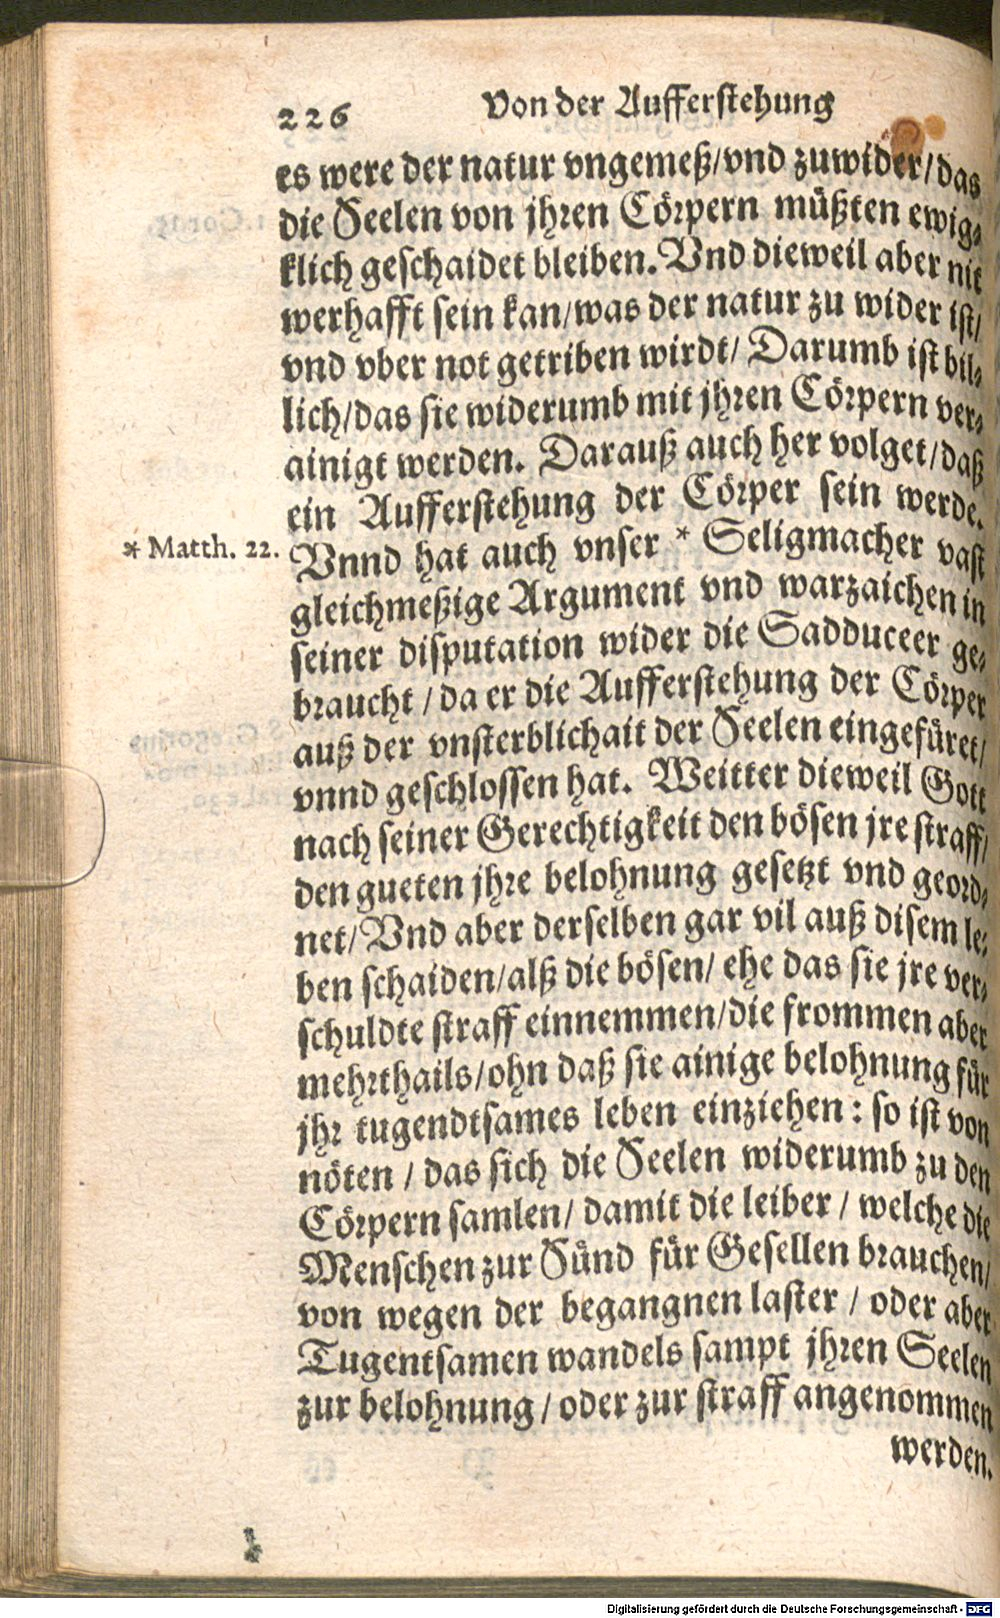 226
Von der Aufferstehung
es were der natur vngemeß/vnd zuwider/das
die Seelen von jhren Cörpern müßten ewig⸗
klich geschaidet bleiben. Vnd dieweil aber nit
werhafft sein kan/was der natur zu wider ist/
vnd vber not getriben wirdt/ Darumb ist bil⸗
lich/das sie widerumb mit jhren Cörpern ver⸗
ainigt werden. Darauß auch her volget/daß
ein Aufferstehung der Cörper sein werde.
* Matth. 22.
Vnnd hat auch vnser * Seligmacher vast
gleichmeßige Argument vnd warzaichen in
seiner disputation wider die Sadduceer ge⸗
braucht / da er die Aufferstehung der Cörper
auß der vnsterblichait der Seelen eingefüret/
vnnd geschlossen hat. Weitter dieweil Gott
nach seiner Gerechtigkeit den bösen jre straff/
den gueten jhre belohnung gesetzt vnd geord⸗
net/ Vnd aber derselben gar vil auß disem le⸗
ben schaiden/alß die bösen/ ehe das sie jre ver⸗
schuldte straff einnemmen/die frommen aber
mehrthails/ohn daß sie ainige belohnung für
jhr tugendtsames leben einziehen: so ist von
nöten / das sich die Seelen widerumb zu den
Cörpern samlen/ damit die leiber / welche die
Menschen zur Sünd für Gesellen brauchen/
von wegen der begangnen laster / oder aber
Tugentsamen wandels sampt jhren Seelen
zur belohnung / oder zur straff angenommen
werden.
Digitalisierung gefördert durch die Deutsche Forschungsgemeinschaft - DFG